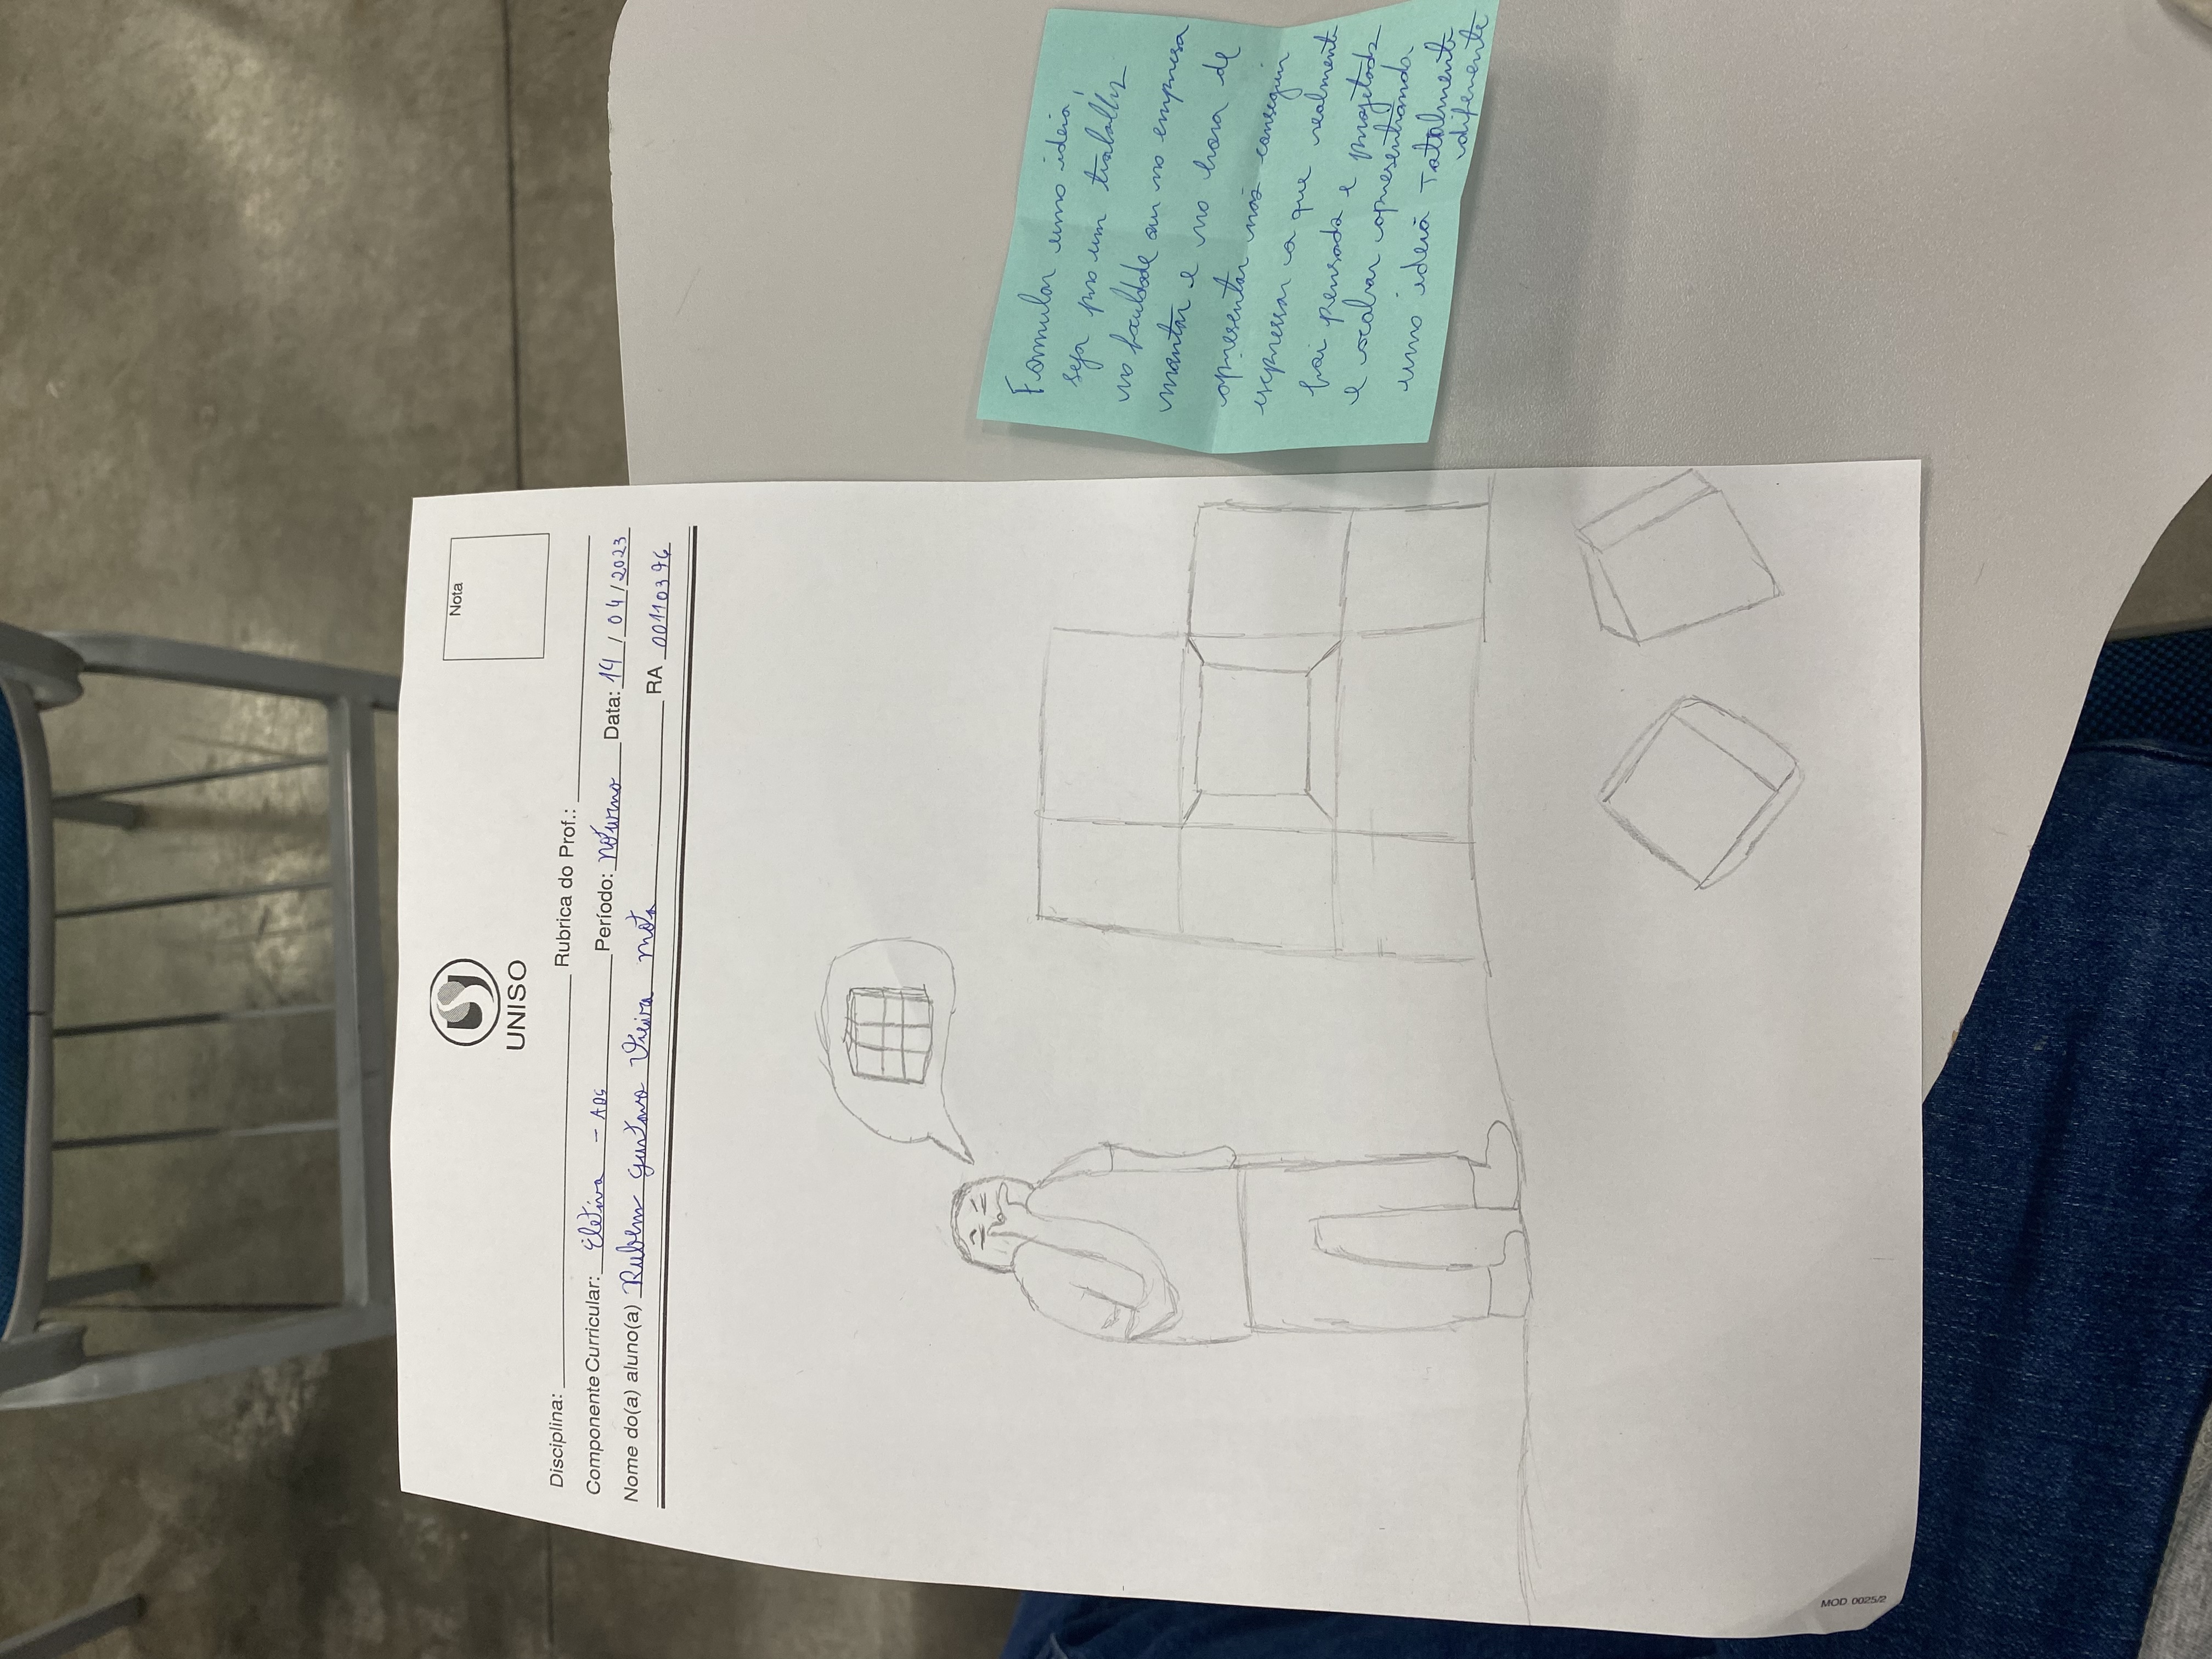 UNISO
Nota
Disciplina: Rubrica do Prof.:
Componente Curricular: Eletiva - ADS Período: Noturno Data: 14/04/2023
Nome do(a) aluno(a) Rubem Gustavo Vieira Mota RA 00110396
Formular uma ideia,
seja pra um trabalho
na faculdade ou na empresa
montar e na hora de
apresentar não conseguir
expressar o que realmente
foi pensado e projetado
e acabar apresentando
uma ideia Totalmente
diferente
MOD. 0025/2